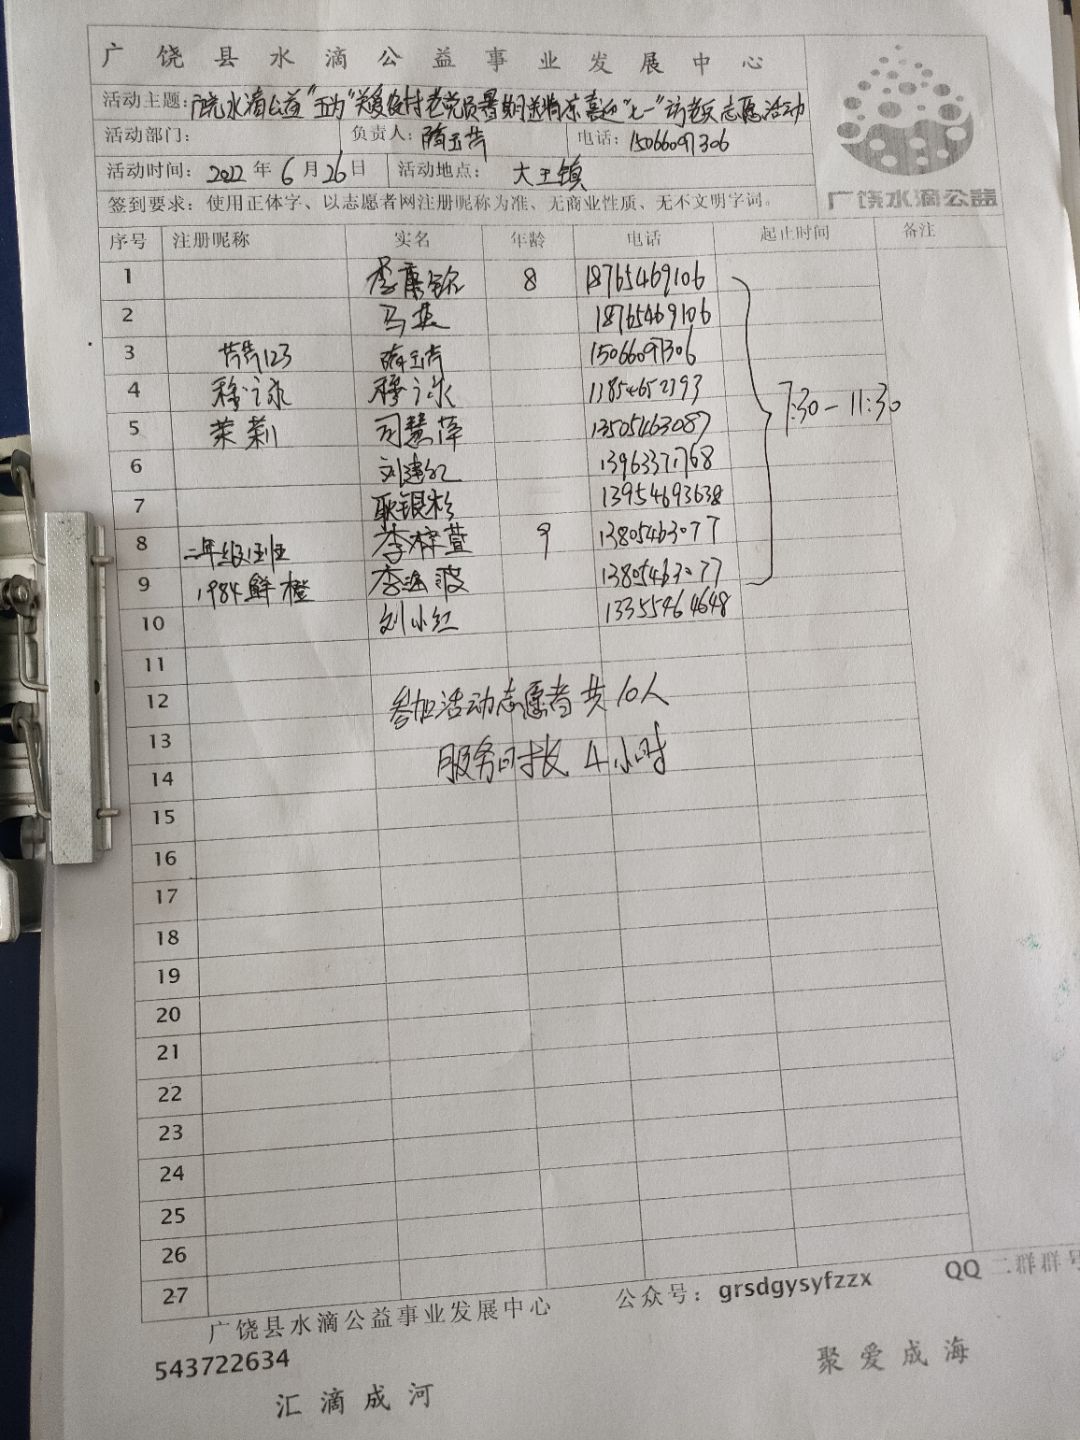 广饶县水滴公益事业发展中心
活动主题：广饶水滴公益"五为"关爱农村老党员暑期送清凉喜迎"七一"访老兵志愿活动
活动部门： 负责人：隋玉芳 电话：15066097306
活动时间：2022年6月26日 活动地点：大王镇
签到要求：使用正体字、以志愿者网注册昵称为准、无商业性质、无不文明字词。
广饶水滴公益
序号 注册昵称 实名 年龄 电话 起止时间 备注
1 8 18765469106
2 马英 18765469106
3 15066097306
4
5 茉莉 司慧萍 13505463087
6 刘建红
7 耿银杉 13954693638
8 二年级 李梓萱 9 13805463077
9 1984鲜橙 李海波 13805463077
10 刘小红 13355464648
7:30-11:30
11
12 参加活动志愿者共10人
13
服务时长4小时
14
15
16
17
18
19
20
21
22
23
24
25
26
27
广饶县水滴公益事业发展中心 公众号：grsdgysyfzzx QQ二群群号
543722634
汇滴成河 聚爱成海